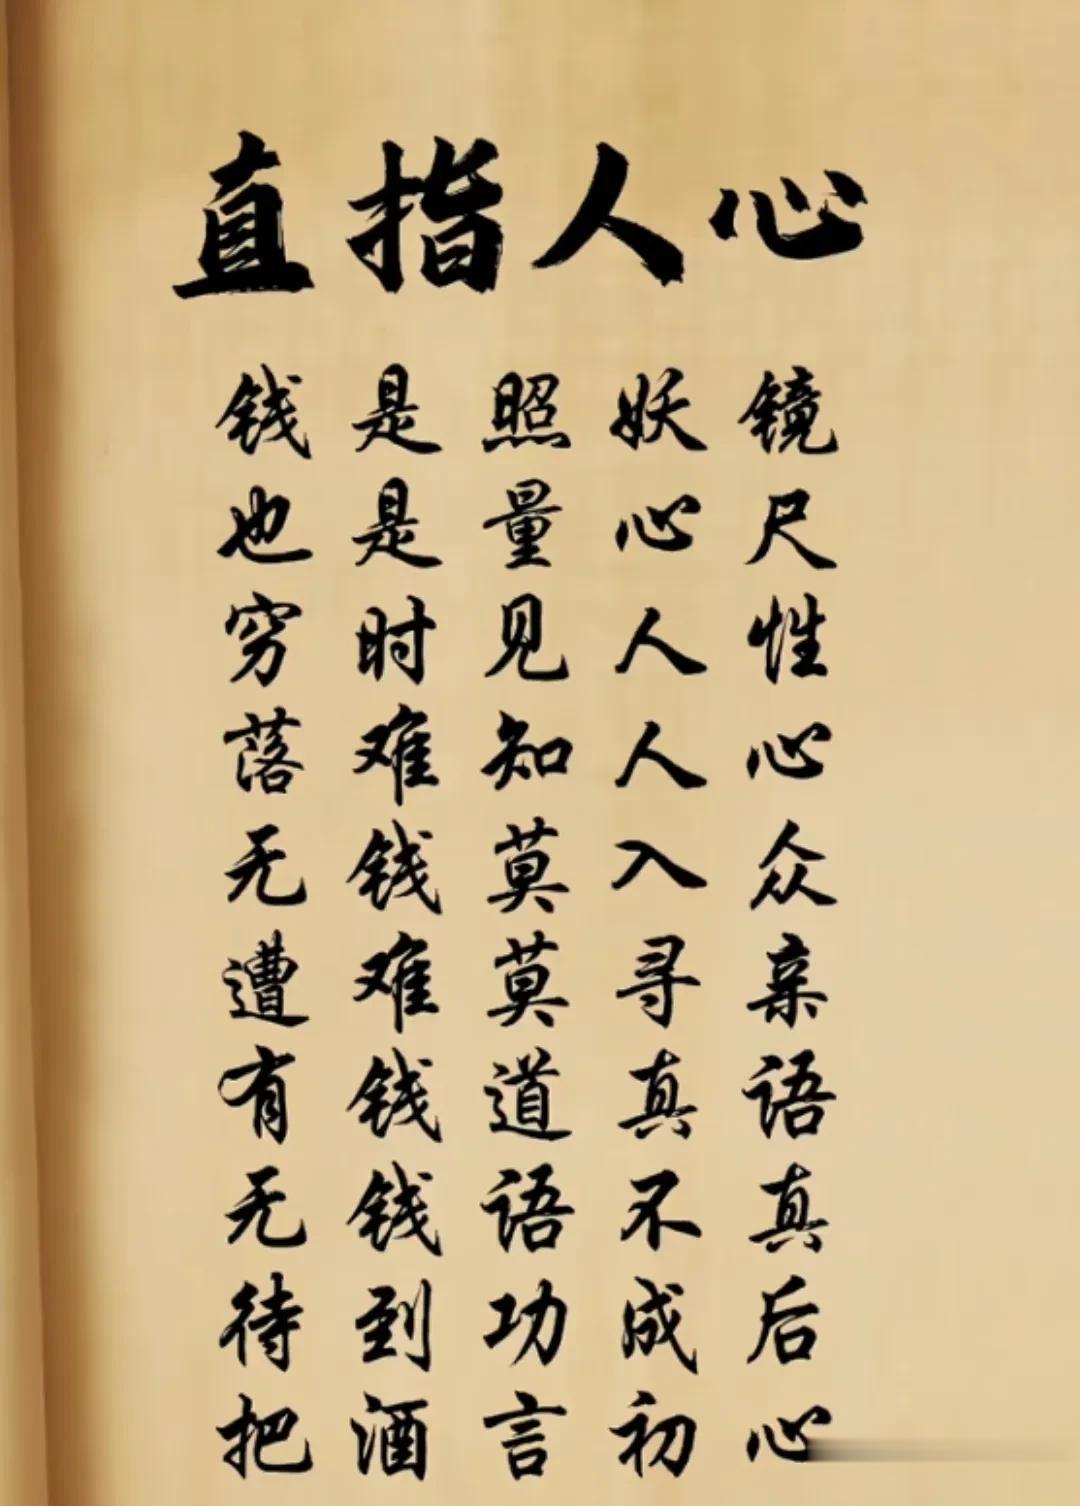 直指人心
钱是照妖镜
也是量心尺
穷时见人性
落难知人心
无钱莫入众
遭难莫寻亲
有钱道真语
无钱语不真
待到功成后
把酒言初心